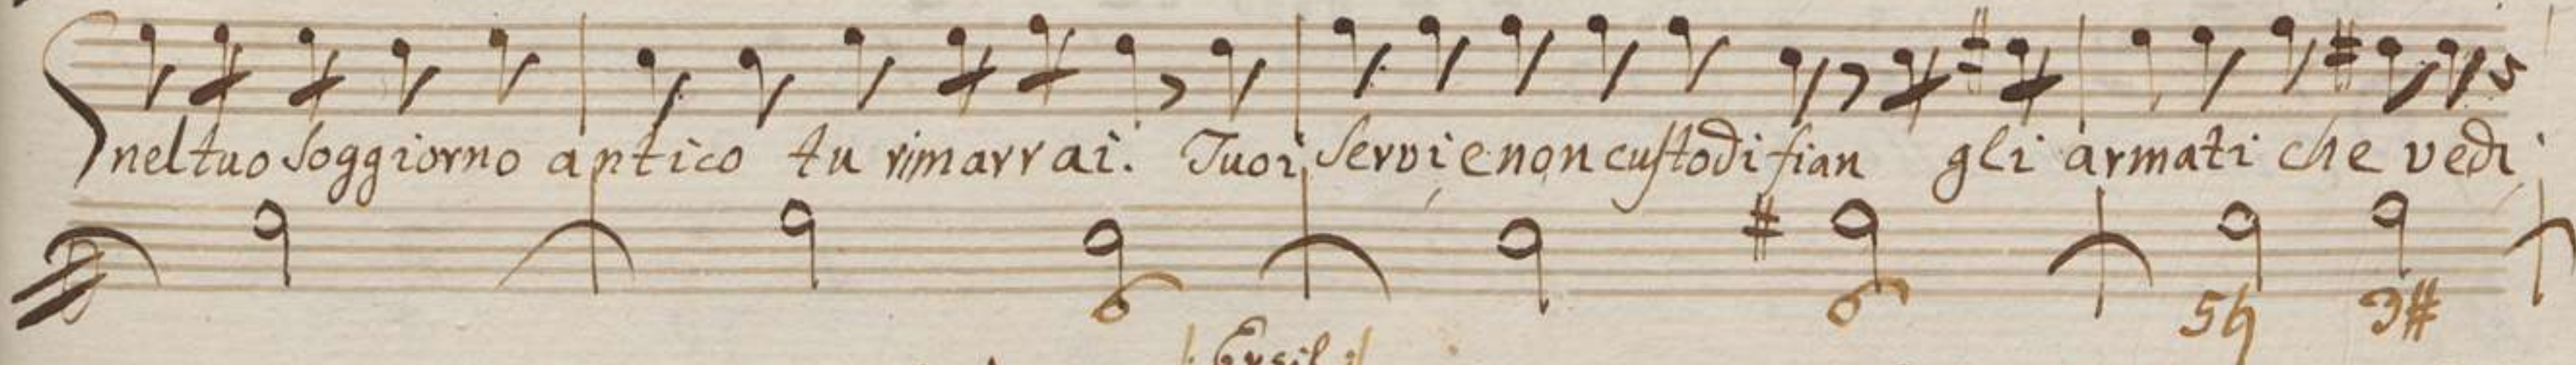 nel tuo soggiorno antico tu rimarrai. Tuoi servi e non custodi fian gli armati che vedi
6 6 5♮ 3#
Ersil